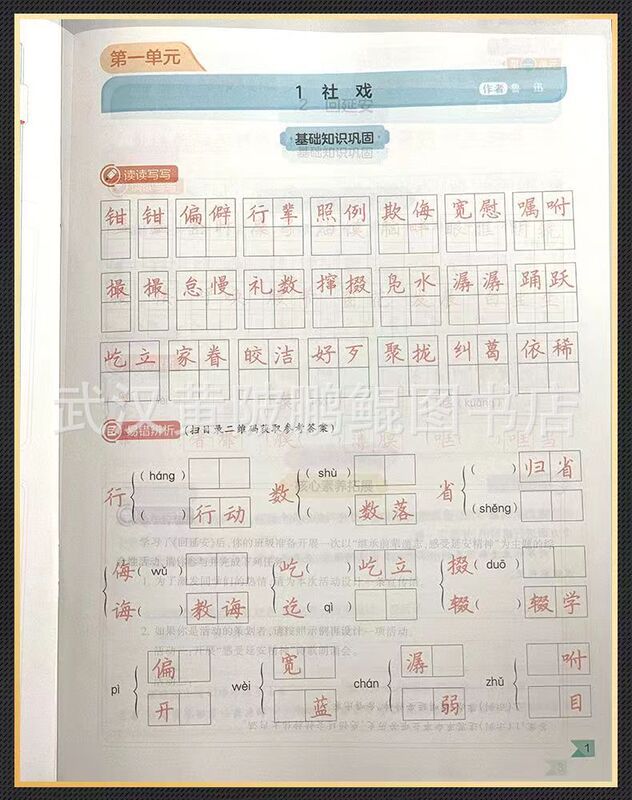 第一单元
1 社 戏 作者 鲁 迅
基础知识巩固
读读写写
钳 钳 偏 僻 行 辈 照 例 欺 侮 宽 慰 嘱 咐
撮 撮 怠 慢 礼 数 撺 掇 凫 水 潺 潺 踊 跃
屹 立 家 眷 皎 洁 好 歹 聚 拢 纠 葛 依 稀
武汉黄陂鹏鲲图书店
易错辨析 (扫目录二维码获取参考答案)
行 (háng) ( ) 行 动 数 (shù) ( ) 数 落 省 ( ) 归 省 (shěng)
侮 (wǔ) 诲 ( ) 教 诲 屹 ( ) 屹 立 迄 (qì) 掇 (duō) 辍 ( ) 辍 学
pì 偏 开 wèi 宽 蓝 chán 潺 弱 zhǔ 咐 目
1